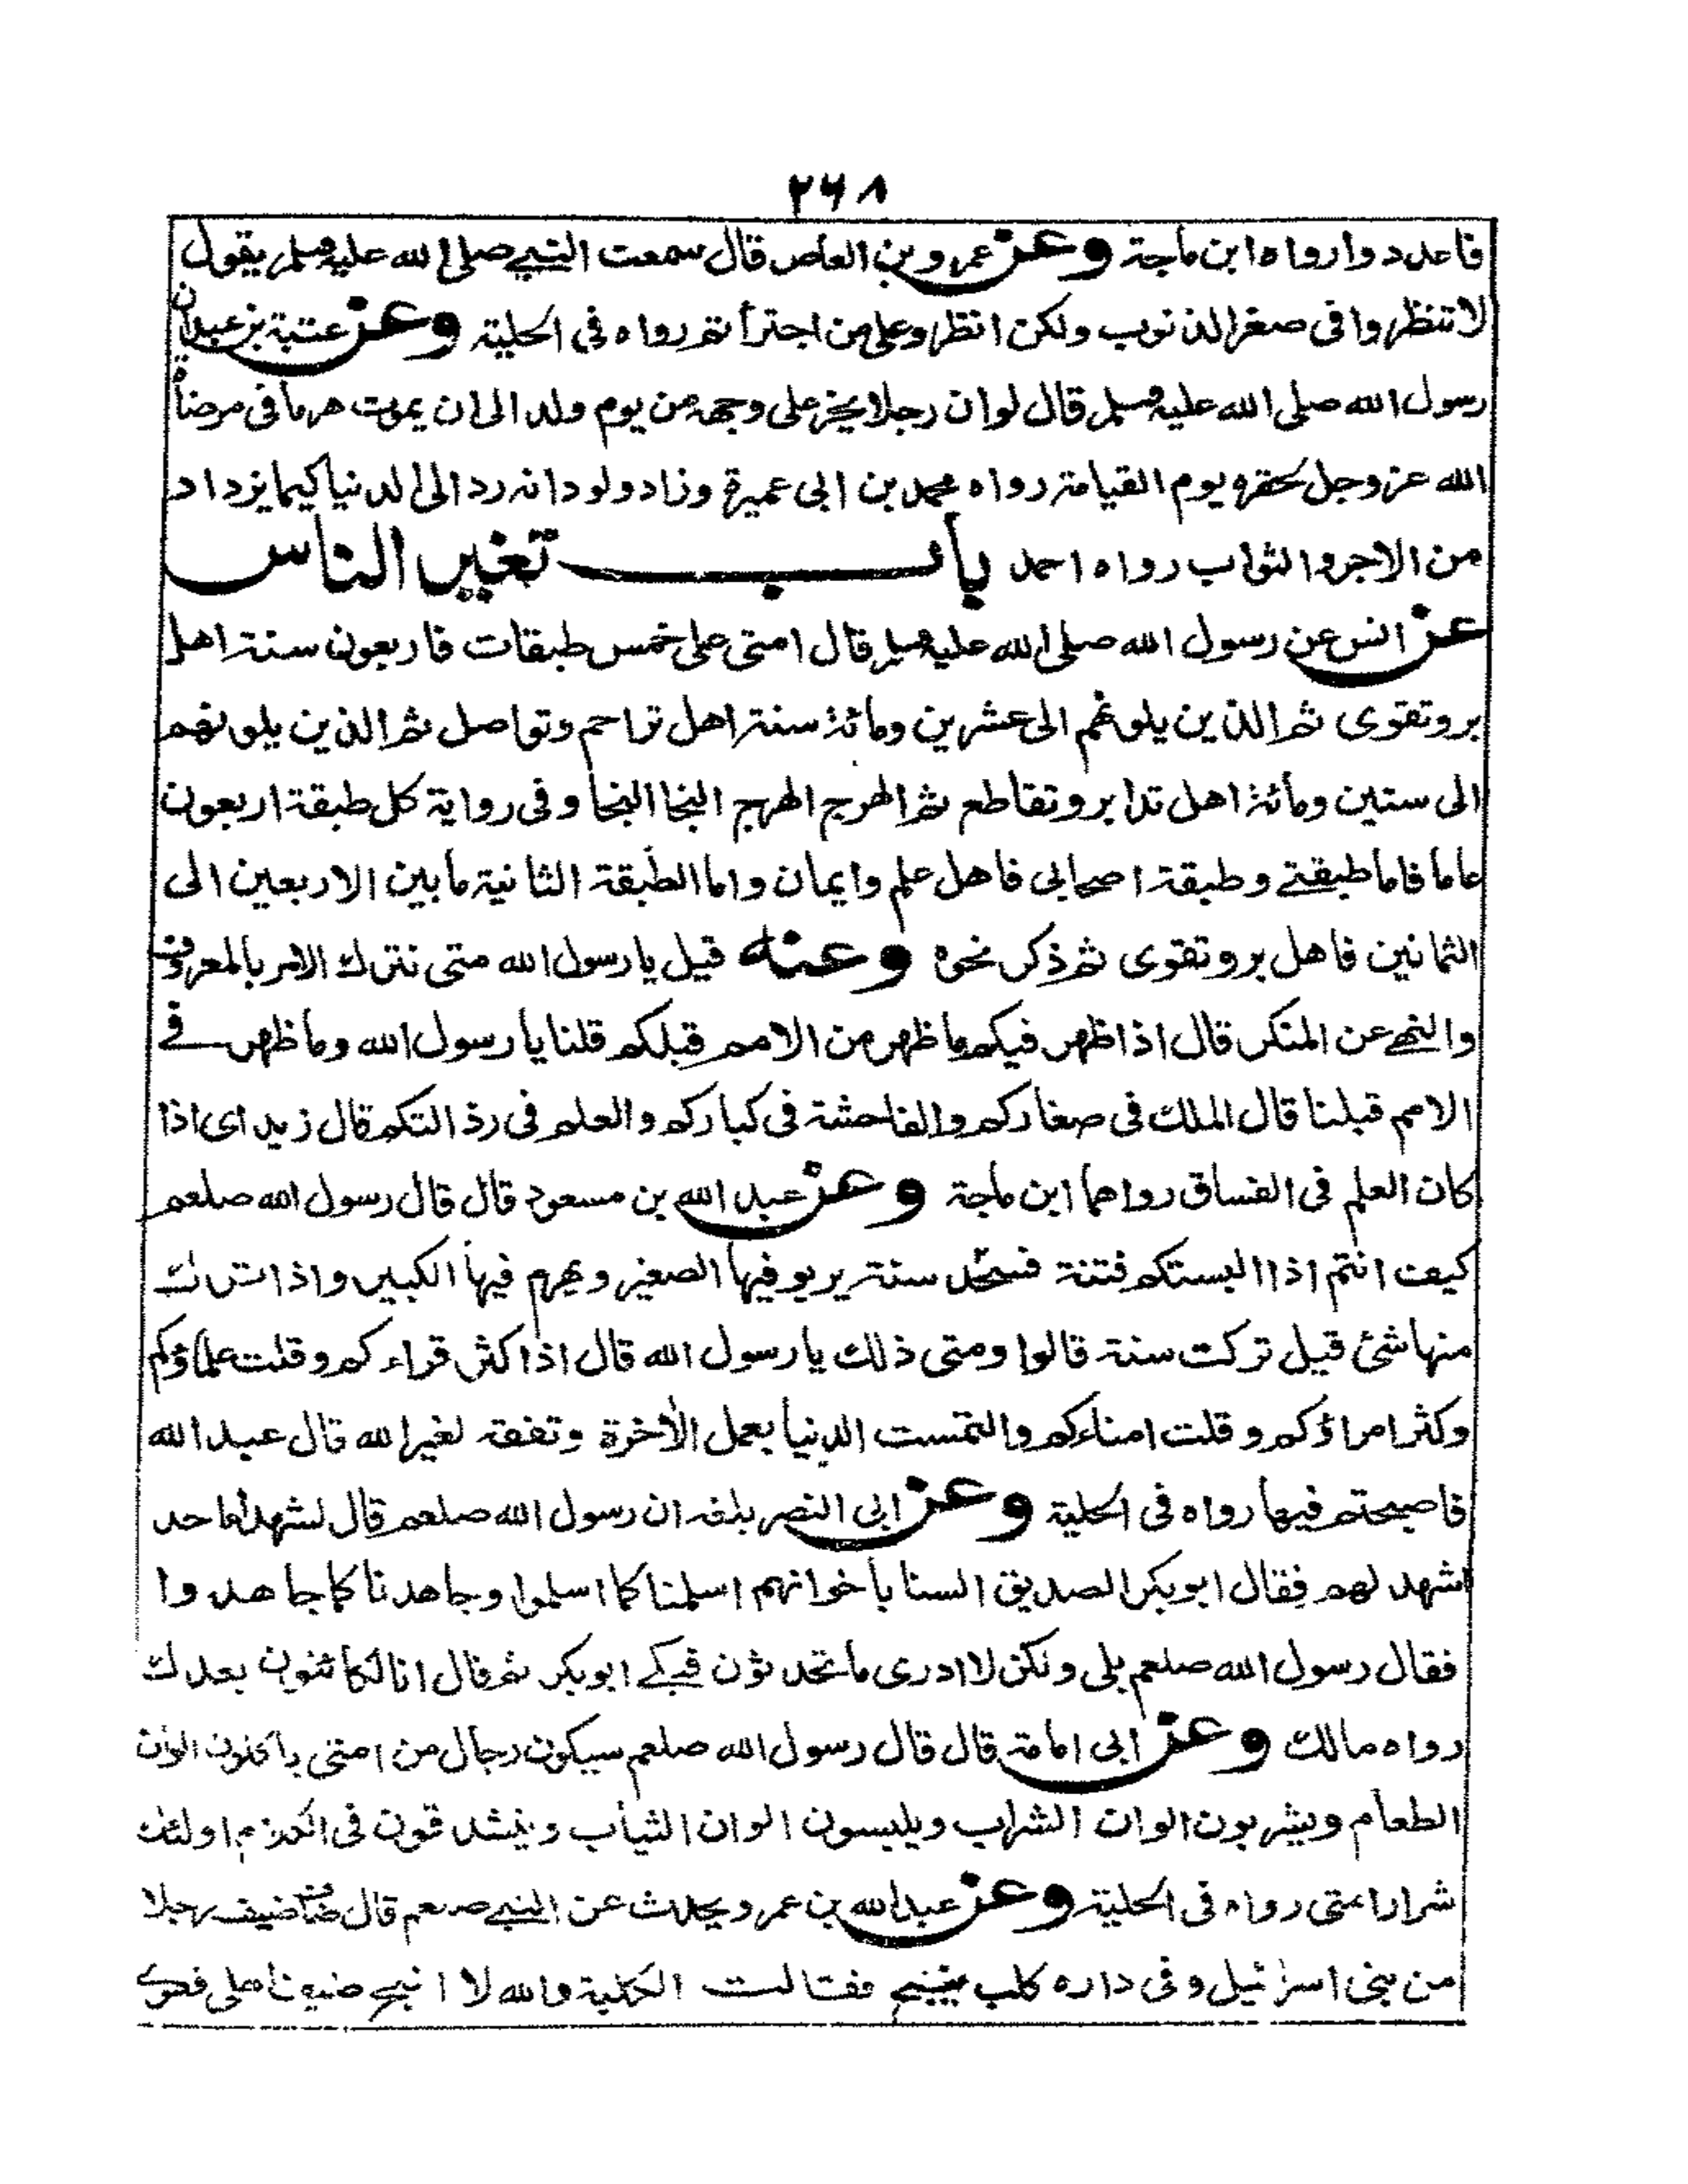 ۲۶۸
فاعددوا رواه ابن ماجة وعن عمرو بن العاص قال سمعت النبي صلى الله عليه وسلم يقول
لا تنظروا فى صغر الذنوب ولكن انظروا على من اجترأتم رواه فى الحلية وعن عتبة بن عبد ان
رسول الله صلى الله عليه وسلم قال لو ان رجلا يخر على وجهه من يوم ولد الى ان يموت هرما فى مرضاة
الله عز وجل لحقره يوم القيامة رواه محمد بن ابى عميرة وزاد ولود انه رد الى الدنيا كيما يزداد
من الاجر والثواب رواه احمد باب تغير الناس
عن انس عن رسول الله صلى الله عليه وسلم قال امتى على خمس طبقات فاربعون سنة اهل
بر وتقوى ثم الذين يلونهم الى عشرين ومائة سنة اهل تراحم وتواصل ثم الذين يلونهم
الى ستين ومائة اهل تدابر وتقاطع ثم الهرج الهرج النجا النجا وفى رواية كل طبقة اربعون
عاما فاما طبقتے وطبقة اصحابى فاهل علم وايمان واما الطبقة الثانية ما بين الاربعين الى
الثمانين فاهل بر وتقوى ثم ذكر نحوه وعنه قيل يا رسول الله متى نترك الامر بالمعروف
والنهے عن المنكر قال اذا ظهر فيكم ما ظهر من الامم قبلكم قلنا يا رسول الله وما ظهر فے
الامم قبلنا قال الملك فى صغاركم والفاحشة فى كباركم والعلم فى رذالتكم قال زيد اى اذا
كان العلم فى الفساق رواهما ابن ماجة وعن عبد الله بن مسعود قال قال رسول الله صلعم
كيف انتم اذا البستكم فتنة فتتخذ سنة يربو فيها الصغير ويهرم فيها الكبير واذا ترك
منها شئ قيل تركت سنة قالوا ومتى ذلك يا رسول الله قال اذا كثر قراءكم وقلت علماؤكم
وكثر امراؤكم وقلت امناءكم والتمست الدنيا بعمل الأخرة وتفقه لغير الله قال عبد الله
فاصبحتم فيها رواه فى الحلية وعن ابى النضر بلغه ان رسول الله صلعم قال لشهداء احد
اشهد لهم فقال ابو بكر الصديق السنا باخوانهم اسلمنا كما اسلموا وجاهدنا كما جاهدوا
فقال رسول الله صلعم بلى ولكن لا ادرى ما تحدثون فبكے ابو بكر ثم قال انا لكائنون بعدك
رواه مالك وعن ابى امامة قال قال رسول الله صلعم سيكون رجال من امتى ياكلون الوان
الطعام ويشربون الوان الشراب ويلبسون الوان الثياب ويتشدقون فى الكلام اولئك
شرار امتى رواه فى الحلية وعن عبد الله بن عمرو يحدث عن النبے صلعم قال ضاف ضيف رجلا
من بنى اسرائيل وفى داره كلب فقالت الكلبة والله لا انبح ضيف اهلى